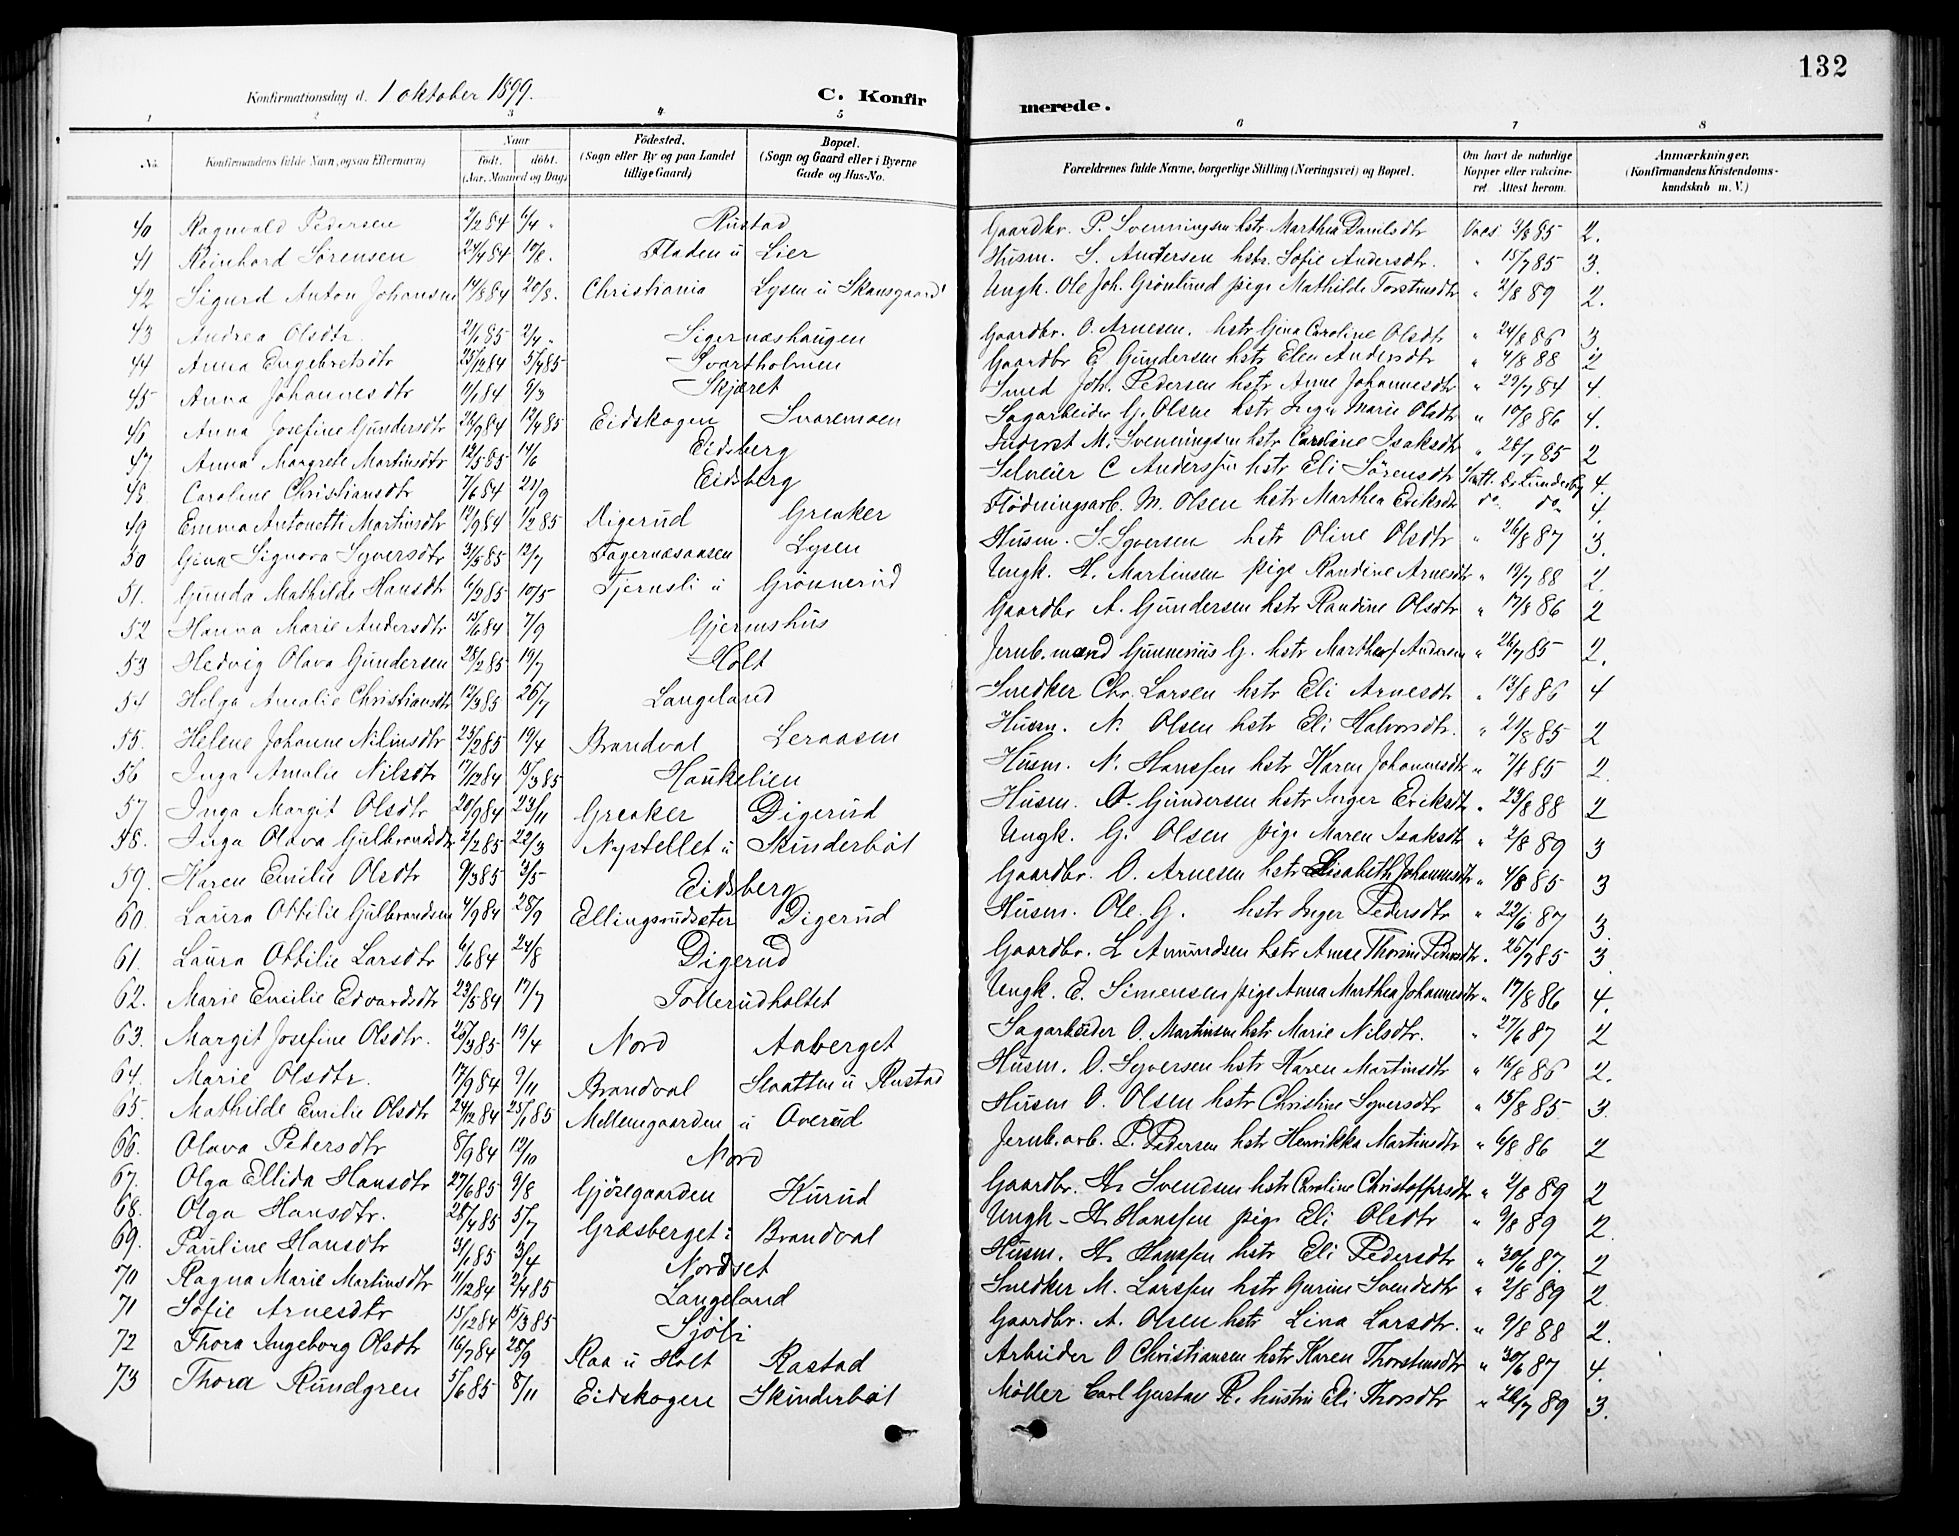 132
Konfirmationsdag d. 1 oktober 1899.
C. Konfirmerede.
1 2 3 4 5 6 7 8
No. Konfirmandens fulde Navn, ogsaa Efternavn) Naar födt. döbt. (Aar, Maaned og Dag) Födested. (Sogn eller By og paa Landet tillige Gaard) Bopæl. (Sogn og Gaard eller i Byerne Gade og Hus-No. Forældrenes fulde Navne, borgerlige Stilling (Næringsvei) og Bopæl. Om havt de naturlige Kopper eller vakcineret. Attest herom. Anmærkninger. (Konfirmandens Kristendomskundskab m. V.)
40 Ragnvald Pedersen 2/2 84 6/4 Rustad Gaardbr. P. Svenningsen hstr Marthea Danilsdtr Vacs. 3/8 85 2.
41 Reinhard Sörensen 24/4 84 10/8. Fladen u Lier Husm. S. Andersen hstr. Sofie Andersdtr. " 15/7 85 3.
42 Sigurd Anton Johansen 14/8 84 20/8. Christiania Lysen u Skansgaard Ungk. Ole Joh. Grönlund pige Mathilde Torstensdtr " 2/8 89 2.
43 Andrea Olsdtr. 21/1 85 2/4 Sigernæshaugen Gaardbr. O. Arnesen. hstr Gina Caroline Olsdtr " 24/8 86 3
44 Anna Engebretsdtr 25/12 84 5/4 85 Svartholmen Gaardbr E Gundersen hstr Elen Andersdtr " 4/8 88 2
45 Anna Johannesdtr 11/1 84 9/3 Skjæret Smed Joh. Pedersen hstr Anne Johannesdtr " 29/7 84 4.
46 Anna Josefine Gundersdtr 26/9 84 12/4 85 Eidskogen Svaremoen Sagarbeider G. Olsen hstr Inger Marie Olsdtr " 10/8 86 4.
47 Anna Margrete Martinsdtr 12/5 85 14/6 Eidsberg Inderst M. Svenningsen hstr Caroline Isaksdtr " 26/7 85 2
48 Caroline Christiansdtr 7/6 84 21/9 Eidsberg Selveier C Anderssen hstr Eli Sörensdtr Att. Dr Lunderby 4.
49 Emma Antonetti Martinsdtr 12/9 84 1/2 85 Digerud Greaker Flödningsarb. M. Olsen hstr Marthea Eriksdtr do do 4.
50 Gina Signora Syversdtr 31/5 85 12/7 Fagernæsaasen Lysen Husm. S. Syversen hstr Oline Olsdtr " 26/8 87 3.
51. Gunda Mathilde Hansdtr 6/2 85 10/5 Tjernsli u Grönnerud Ungk. H. Martinsen pige Randine Arnesdtr " 19/7 88 2.
52 Hanna Marie Andersdtr 15/6 84 7/9 Gjermshus Gaardbr A. Gundersen hstr Randine Olsdtr " 17/8 86 2
53 Hedvig Olava Gundersen 28/2 85 19/7 Holt Jernb.mand Gunnerius G. hstr Marthea Andersen " 26/7 85 2.
54 Helga Amalie Christiansdtr 12/3 85 26/7 Langeland Snedker Chr. Larsen hstr Eli Arnesdtr " 13/8 86 4
55. Helene Johanne Nilsdtr 25/2 85 19/4 Brandval Leraasen Husm. N. Olsen hstr Eli Halvorsdtr. " 21/8 85 2
56 Inga Amalie Nilsdtr 17/12 84 15/3 85 Haukelien Husm. N. Hanssen hstr Karen Johannesdtr " 7/8 85 2.
57 Inga Margit Olsdtr 20/9 84 23/11 Greaker Digerud Husm. O. Gundersen hstr Inger Eriksdtr " 23/8 88 2
58. Inga Olava Gulbrandsdtr 2/2 85 22/3 Nystellet u Skinderböl Ungk. G. Olsen pige Maren Isaksdtr " 2/8 89 3
59. Karen Emilie Olsdtr 9/3 85 3/5 Eidsberg Gaardbr. O. Arnesen hstr Elisabeth Johannesdtr " 4/8 85 3
60. Laura Ottilie Gulbrandsen 4/9 84 28/9 Ellingsrudsæter Digerud Husm. Ole G. hstr Inger Pedersdtr " 22/6 87 3.
61. Laura Ottilie Larsdtr 6/6 84 24/8 Digerud Gaardbr. L Amundsen hstr Anne Thorine Pedersdtr. 25/7 85 3
62. Marie Emilie Edvardsdtr 23/5 84 17/7 Tollerudholtet Ungk. E. Simensen pige Anna Marthea Johannesdtr " 17/8 86 4.
63. Margit Josefine Olsdtr. 26/3 85 19/4 Nord Aaberget Sagarbeider O. Martinsen hstr Marie Nilsdtr. " 27/6 87 2
64. Marie Olsdtr. 17/9 84 9/11 Brandval Slaatten u Rustad Husm. O. Syversen hstr Karen Martinsdtr " 16/8 86 2.
65. Mathilde Emilie Olsdtr 24/12 84 25/1 85 Mellemgaarden u Overud Husm O. Olsen hstr Christine Syversdtr " 15/8 85 3.
66. Olava Petersdtr 8/9 84 12/10 Nord Jernb.arb. P. Pedersen hstr Henrikka Martinsdtr " 6/8 86 2
67. Olga Ellida Hansdtr 27/6 85 9/8 Gjösegaarden Kurud Gaardbr. H. Svendsen hstr Caroline Christoffersdtr " 2/8 89 2
68. Olga Hansdtr. 28/4 85 5/7 Græsberget i Brandval Ungk. H. Hanssen pige Eli Olsdtr " 9/8 89 2.
69. Pauline Hansdtr 31/1 85 3/4 Nordset Husm. H. Hanssen hstr Eli Pedersdtr " 30/6 87. 2
70 Ragna Marie Martinsdtr 11/12 84 2/4 85 Langeland Snedker M. Larssen hstr Gurine Svendsdtr " 2/8 89 2.
71 Sofie Arnesdtr 15/12 84 15/3 85 Sjöli Gaardbr. A. Olsen hstr Lina Larsdtr. " 9/8 88 2.
72 Thora Ingeborg Olsdtr 16/7 84 28/9 Raa u Holt Rastad Arbeider O Christiansen hstr Karen Thorstensdtr " 30/6 87 4.
73 Thora Rundgren 5/6 85 8/11 Eidskogen Skinderböl Möller Carl Gustav R. hustru Eli Thorsdtr " 26/7 89 3.